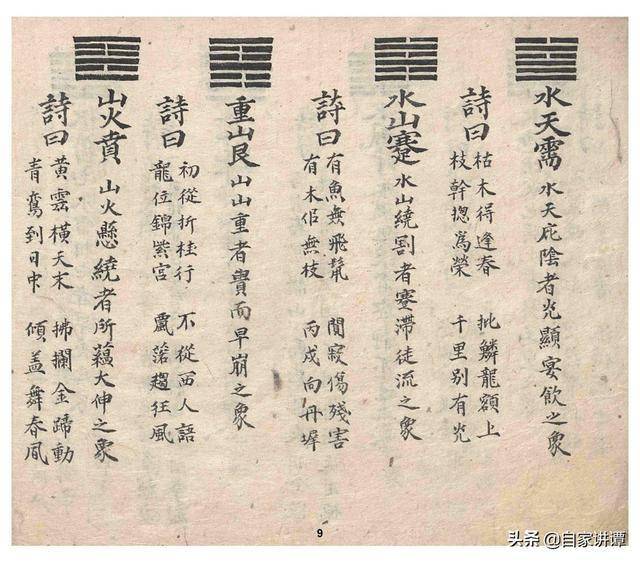 水天需 水天庇陰者光顯宴飲之象
詩曰
枯木得逢春 批鱗龍額上
枝幹揔為榮 千里别有光
水山蹇 水山繞割者蹇滯徒流之象
詩曰
有魚無飛鬛 閴寂傷殘害
有木但無枝 丙戌向丹墀
重山艮 山山重者貴而早崩之象
詩曰
初從折桂行 不從西人語
龍位錦紫宮 飄蕩趨狂風
山火賁 山火懸繞者所藴大伸之象
詩曰
黄雲橫天末 拂攔金蹄動
青鸞到日中 傾盖舞春風
9
头条 @自家讲谭